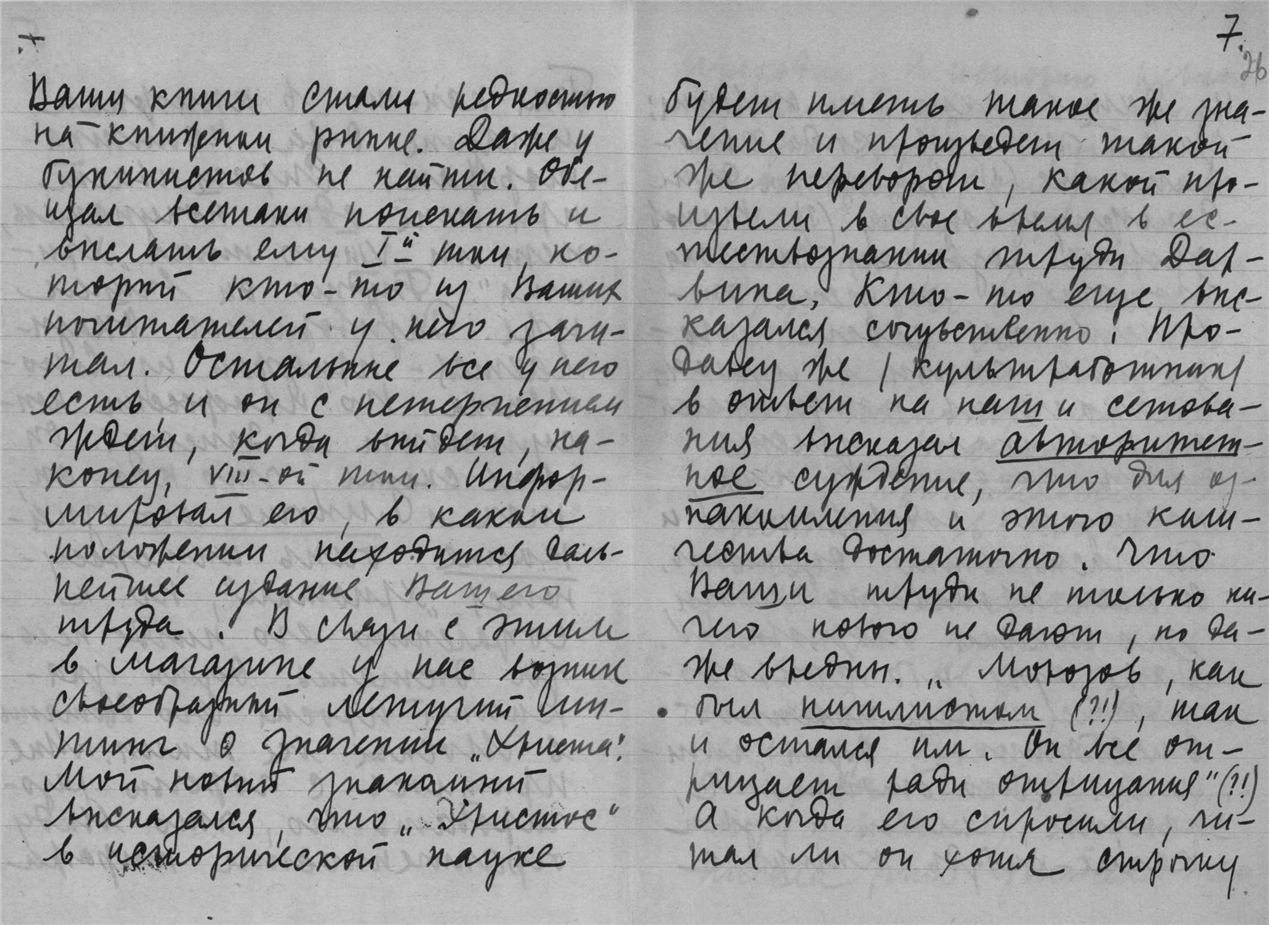 Ваши книги стали редкостью
на книжном рынке. Даже у
букинистов не найти. Обе-
щал всетаки поискать и
выслать ему I-й том, ко-
торый кто-то из Ваших
почитателей у него зачи-
тал. Остальные все у него
есть и он с нетерпением
ждет, когда выйдет, на-
конец, VIII-ой том. Инфор-
мировал его, в каком
положении находится даль-
нейшее издание Вашего
труда. В связи с этим
в магазине у нас возник
своеобразный летучий ми-
тинг о значении „Христа".
Мой новый знакомый
высказался, что „Христос"
в исторической науке
7.
26
будет иметь такое же зна-
чение и произведет такой
же переворот, какой про-
извели в свое время в ес-
тествознании труды Дар-
вина. Кто-то еще выс-
казался сочувственно. Про-
давец же /культработник/
в ответ на наши сетова-
ния высказал авторитет-
ное суждение, что для оз-
накомления и этого коли-
чества достаточно. Что
Ваши труды не только ни-
чего нового не дают, но да-
же вредны. „Морозов, как
был нигилистом (?!), так
и остался им. Он все от-
рицает ради отрицания" (?!)
А когда его спросили, чи-
тал ли он хотя строчку